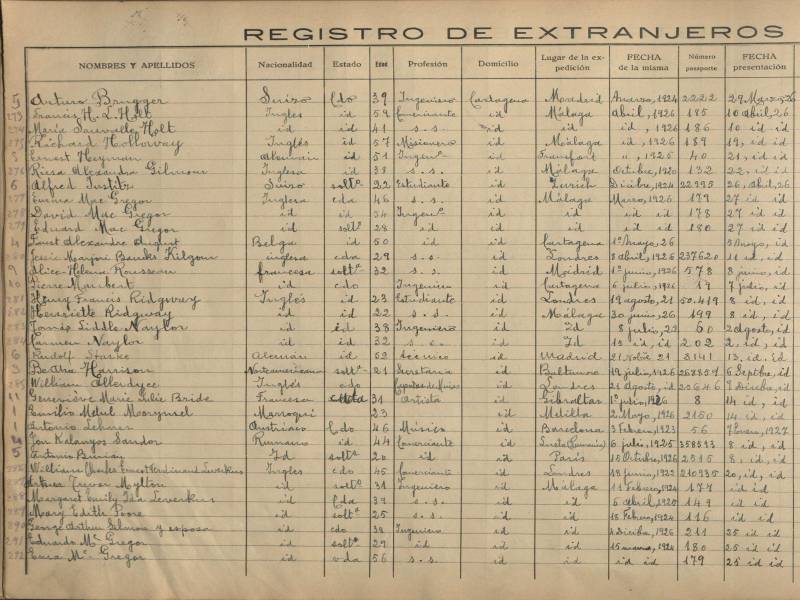 REGISTRO DE EXTRANJEROS
NOMBRES Y APELLIDOS Nacionalidad Estado Edad Profesión Domicilio Lugar de la expedición FECHA de la misma Número pasaporte FECHA presentación
5 Arturo Brugger Suizo Cdo 39 Ingeniero Cartagena Madrid 1924 2222
273 Francis H. L. Holt Ingles id 59 Comerciante id Málaga Abril, 1926 185 10 abril, 26
274 Marie Holt id id 41 s.s. id id id, 1926 186 10 id id
275 Richard Holloway Inglés id 57 Misionero id Málaga id, 1926 189 19, id id
3 Ernest Heyman Aleman id 51 Ingenº id Francfort 1925 40 21, id id
276 Gilmour Inglesa id 38 s.s. id Málaga Octubre, 1920 132 22, id id
6 Alfred Suizo soltº 22 Estudiante id Zurich Dicibre, 1924 22395 26, abril, 26
277 Emma Mac Gregor Inglesa cda 46 s.s. id Málaga Marzo, 1926 179 27 id id
278 David Mac Gregor id id 54 Ingenº id id id id 178 27 id id
279 Eduard Mac Gregor id soltº 28 id id id id id 180 27 id id
4 Alexandre August Belga id 50 id id Cartagena 1º Mayo, 26 3 Mayo, id
Jessie Marjori Banks Kilgour inglesa cda 29 s.s. id Londres 8 abril, 1926 237620 11 id. id
9 Alice-Helena Rousseau francesa soltª 32 s.s. id Madrid 1º junio, 1926 578 8 junio, id
10 Pierre Maubert id cdo Ingeniero id Cartagena 6 julio, 1926 19 7 julio, id
Henry Francis Ridgway Inglés id 23 Estudiante id Londres 19 agosto, 21 50.419 8 id, id
Henriette Ridgway id id 22 s.s. id Málaga 30 junio, 26 199 8 id, id
Tomás Liddle Naylor id id 38 Ingeniero id Id 8 julio, 22 60 2 agosto, id
Carmen Naylor id id 32 s.s. id Id 13 id, id 202 2, id, id
6 Rudolf Starke Alemán id 52 técnico id Madrid 21 21 3141 13, id. id
3 Harrison Norteamericana soltª 21 Secretaria id Baltimore 19 julio, 1926 268857 6 Septbre, id
285 William Allerdyce Inglés cdo Capataz de Minas id Londres 21 Agosto, id 22646 2 Dicibre, id
11 Geneviève Marie Julie Bride Francesa 31 Artista id Gibraltar 1º julio, 1926 8 14 id, id
Marroqui 23 id Melilla 2 Mayo, 1926 2150 14 id, id
1 Antonio Lehner Austriaco Cdo 46 Músico id Barcelona 3 Febrero, 1923 56 7 Enero, 1927
4 Jon Kalanyos Sandor Rumano id 44 Comerciante id 6 julio, 1925 358593 8 id, id
5 Antonio Id soltº 20 id id Paris 15 Octubre, 1926 2515 8, id, id
William Charles Ernest Ferdinand Leverkus Ingles cdo 45 Comerciante id Londres 19 junio, 1922 210935 20, id, id
Arthur Trevor Moylton id soltº 31 Ingeniero id Málaga 11 Febrero, 1924 177 id id
Margaret Emily Leverkus id Cda 37 s.s. id id 5 abril, 1920 149 id id
Mary Edith Poore id soltª 25 s.s. id id 18 Febrero, 1924 116 id id
290 George Arthur Gilmou y esposa id cdo 39 Ingeniero id id 4 Dicibre, 1926 211 25 id id
291 Eduardo Mc Gregor id soltº 29 id id id 15 marzo, 1924 180 25 id id
292 Emma Mc Gregor id vda 56 s.s. id id id 179 25 id id